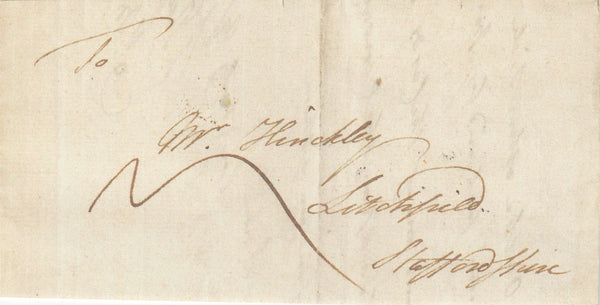 To
Mr. Hinckley
Litchfield
Staffordshire